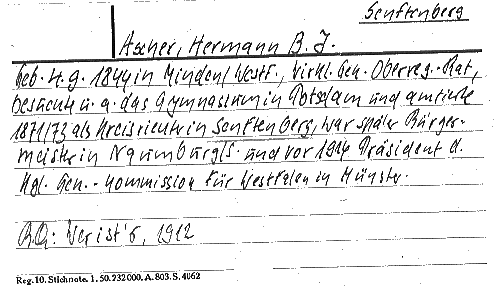 Senftenberg
Ascher, Hermann B. J.
Geb. 4.9. 1844 in Minden/Westf., Wirkl. Geh. Oberreg.-Rat,
besuchte u. a. das Gymnasium in Potsdam und amtierte
1871/73 als Kreisrichter in Senftenberg, war später Bürger-
meister in Naumburg/S. und vor 1914 Präsident d.
Kgl. Gen.-Kommission für Westfalen in Münster.
BQ: Wer ist's, 1912
Reg. 10. Stichnote. 1. 50. 232000. A. 803. S. 4062